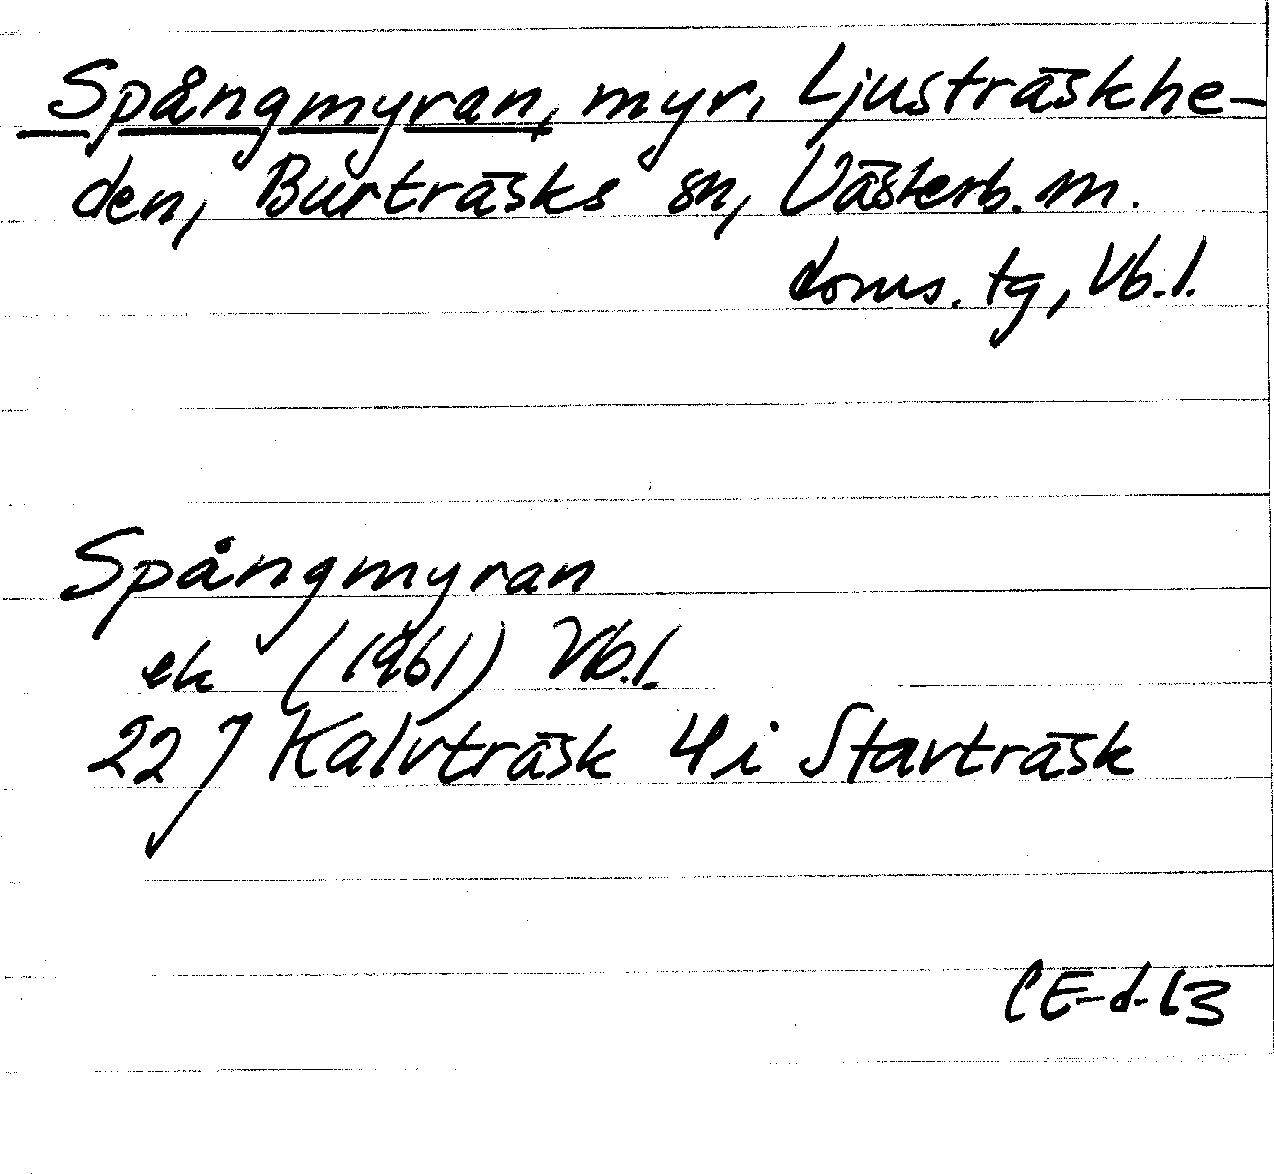 Spångmyran, myr, Ljusträskhe-
den, Burträsks sn, Västerb. m.
doms. tg, Vb.l.
Spångmyran
ek (1961) Vb.l.
22 J Kalvträsk 4 i Stavträsk
CE-d-63